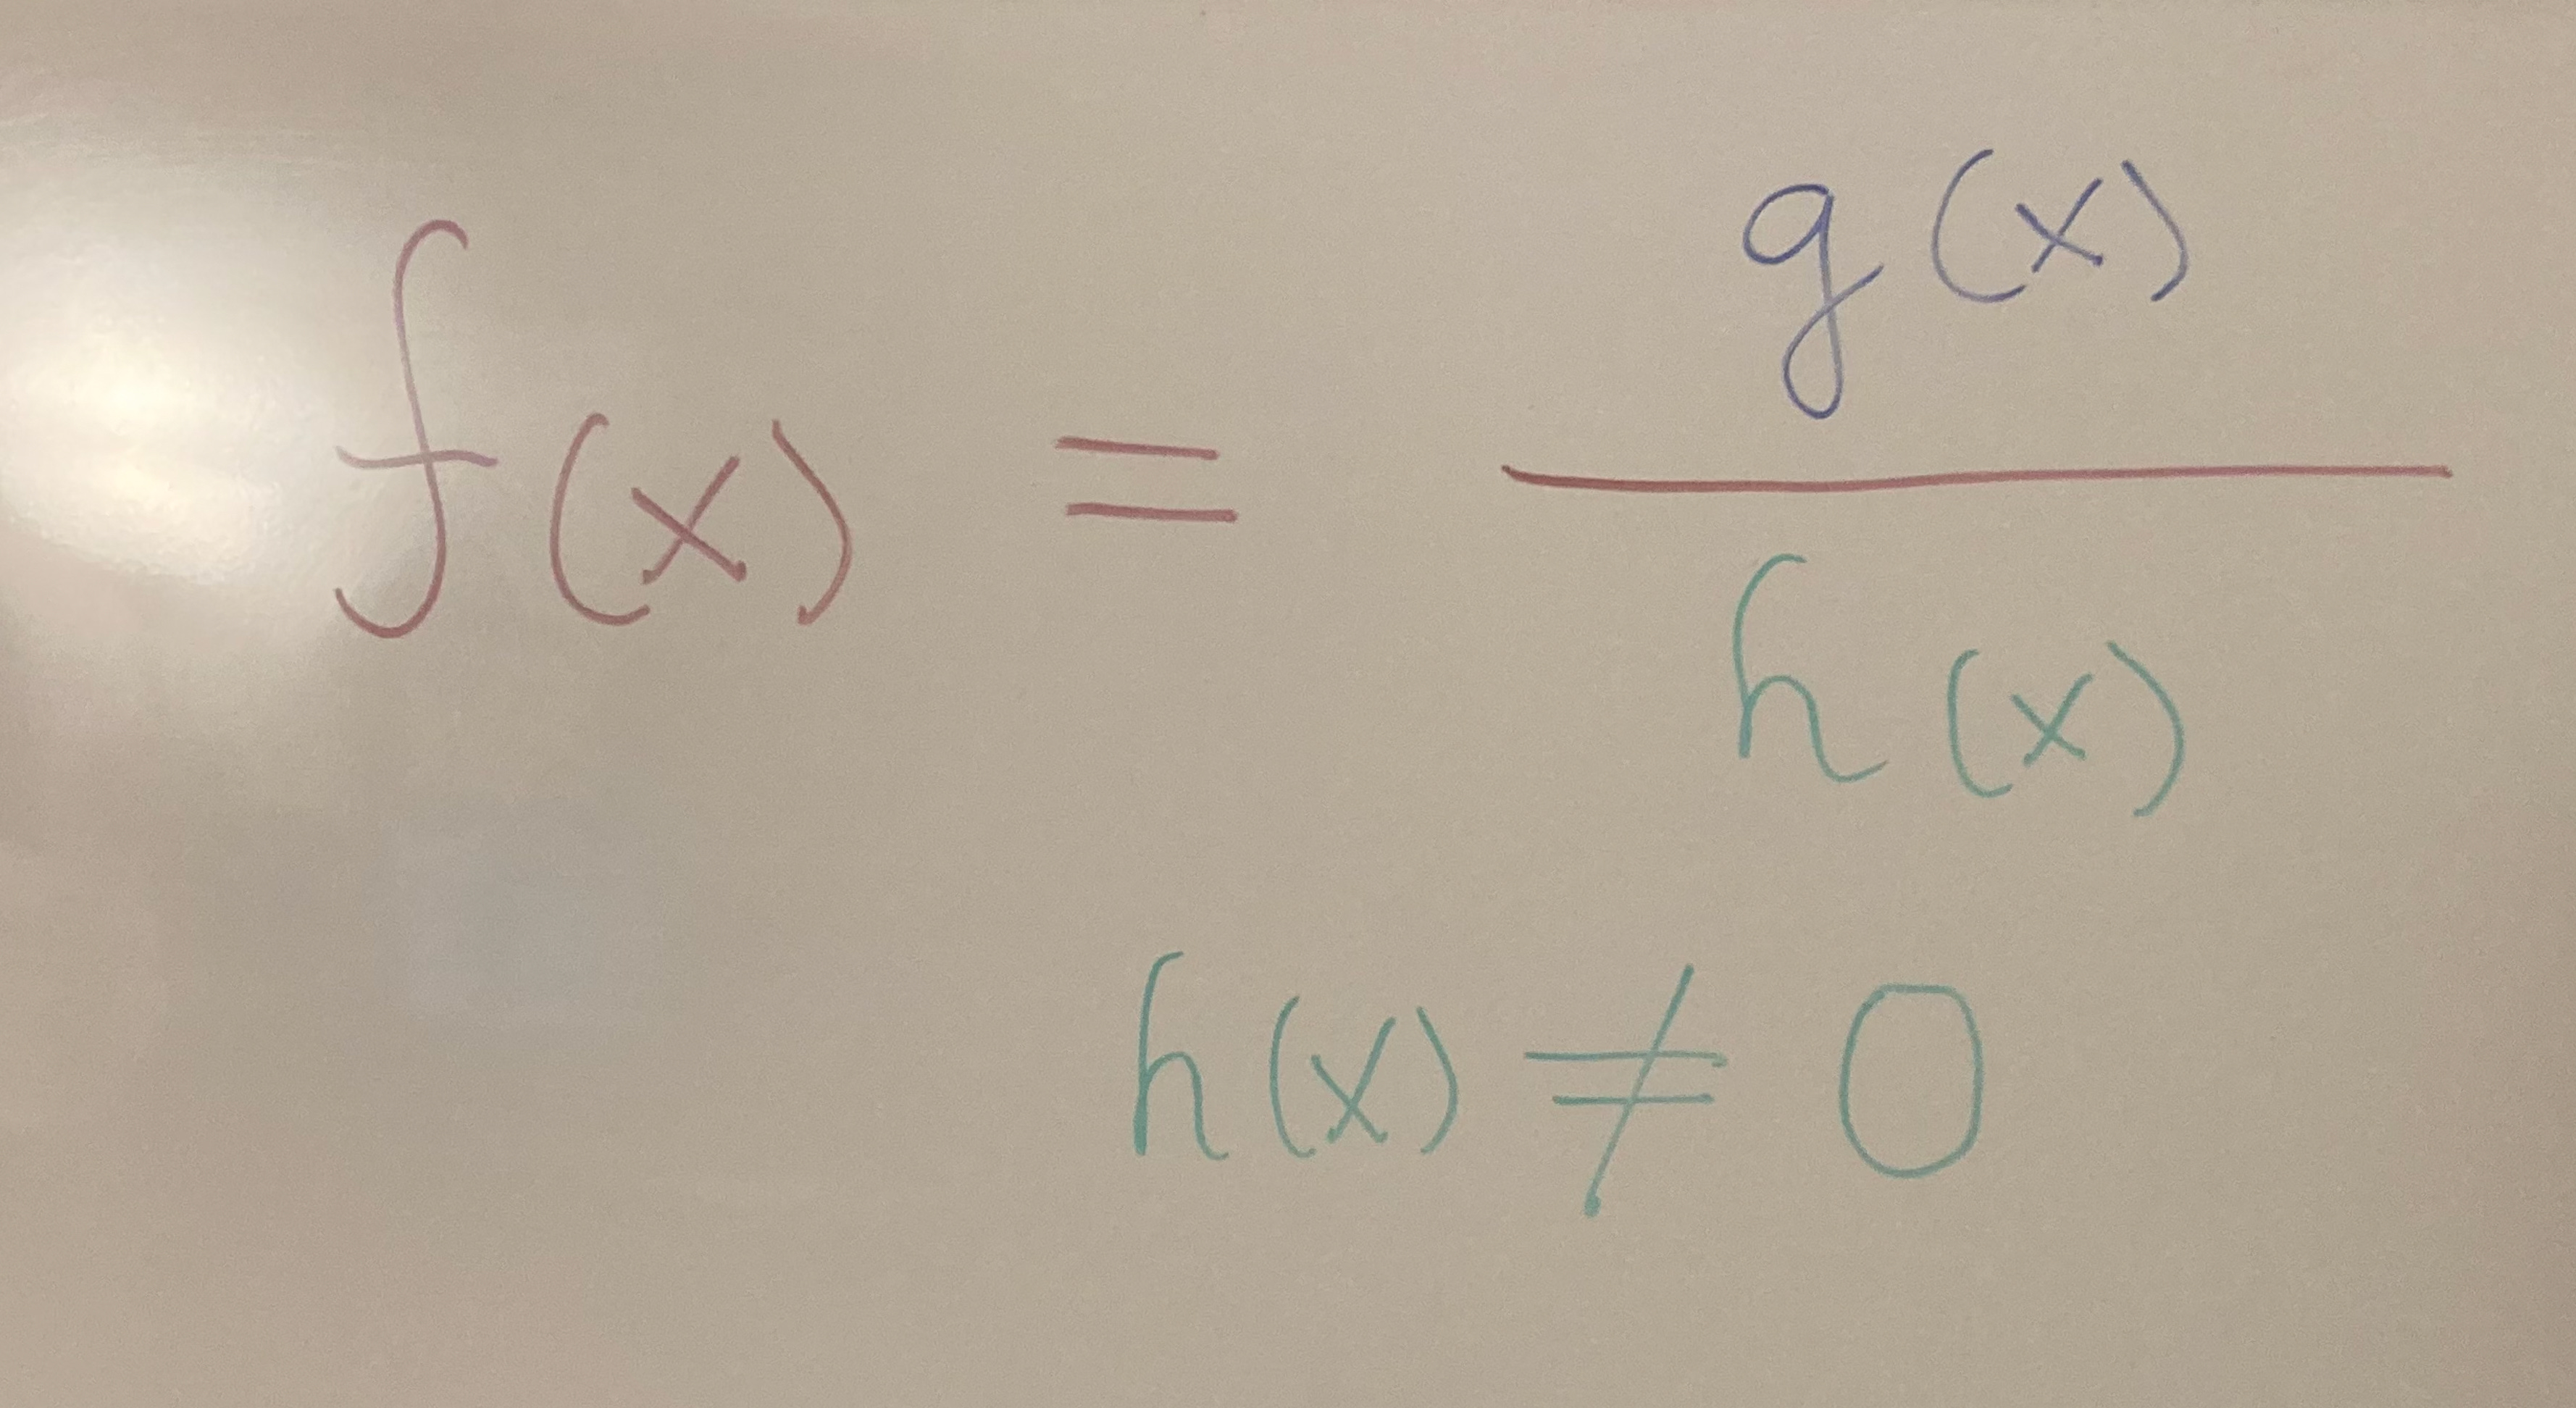 f(x) = g(x) / h(x)
h(x) ≠ 0